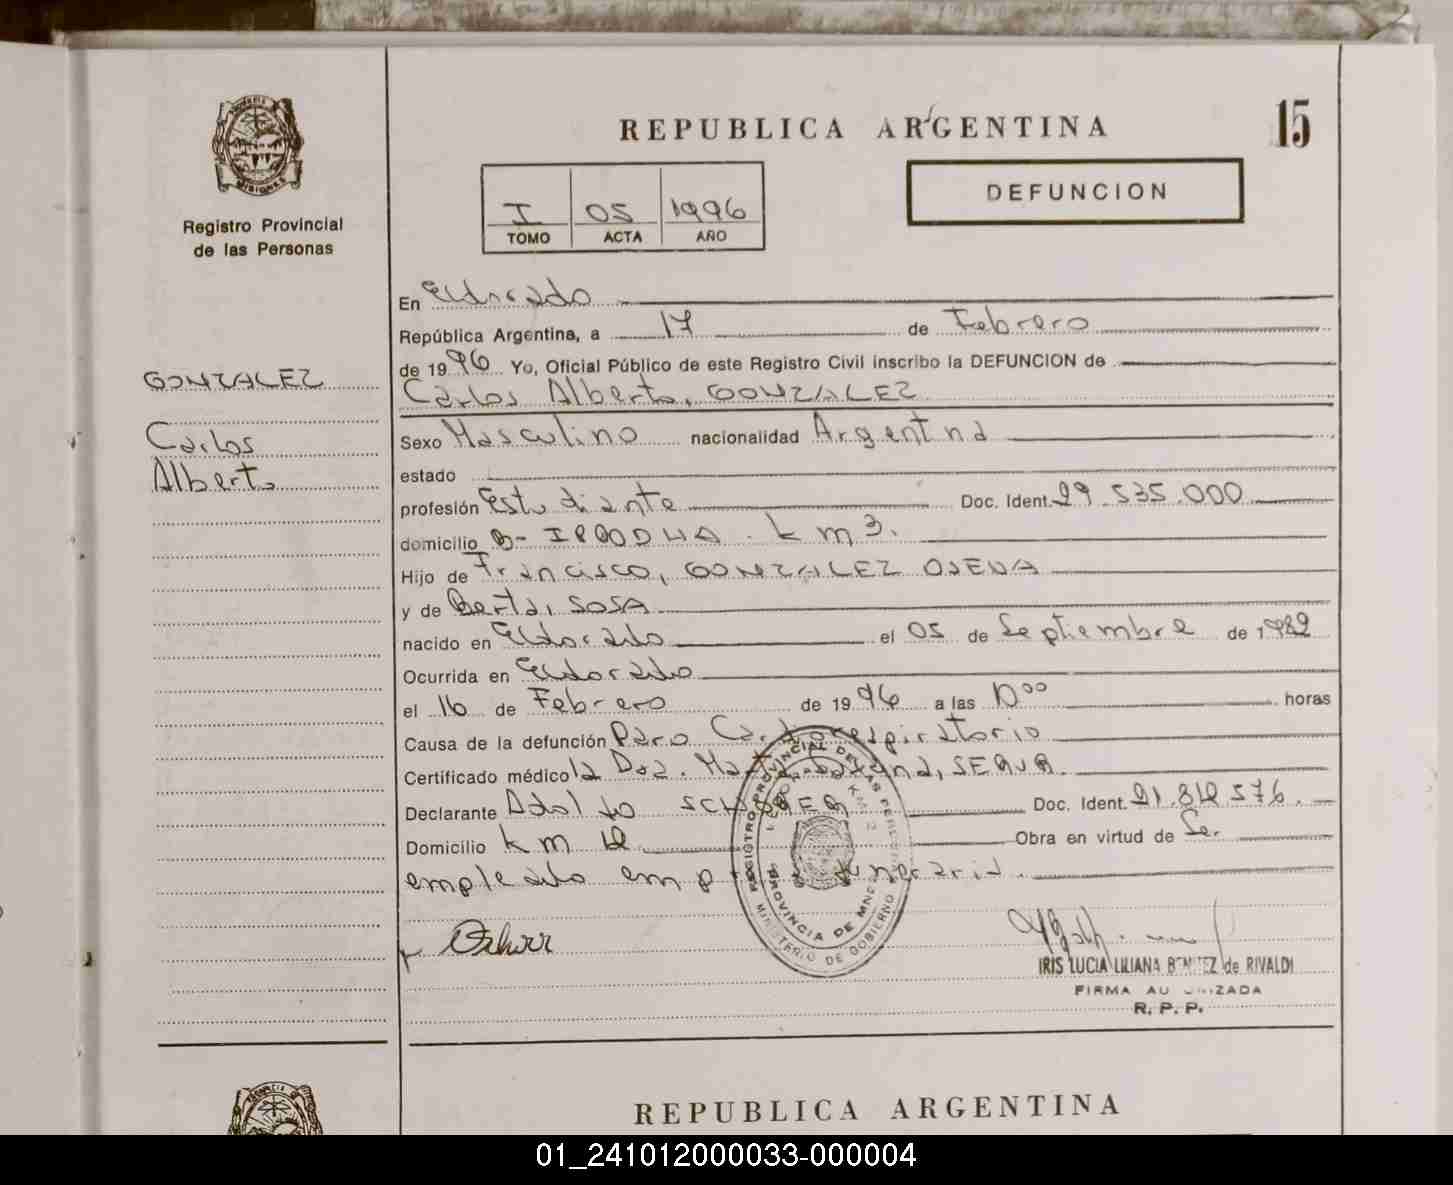 REPUBLICA ARGENTINA
15
MISIONES
Registro Provincial
de las Personas
DEFUNCION
I 05 1996
TOMO ACTA AÑO
En Eldorado
República Argentina, a 17 de Febrero
de 1996 Yo, Oficial Público de este Registro Civil inscribo la DEFUNCION de
GONZALEZ
Carlos Alberto, GONZALEZ
Carlos
Alberto
Sexo Masculino nacionalidad Argentina
estado
profesión Estudiante Doc. Ident. 29.535.000
domicilio B- km 3.
Hijo de Francisco, GONZALEZ
y de Berta, SOSA
nacido en Eldorado el 05 de Septiembre de 1982
Ocurrida en Eldorado
el 16 de Febrero de 1996 a las 10⁰⁰ horas
Causa de la defunción Paro Cardiorespiratorio
Certificado médico la Dra.
Declarante Adolfo Doc. Ident. 21.812.576.
Domicilio km Obra en virtud de Ser
empleado empresa funeraria.
REGISTRO PROVINCIAL DE LAS PERSONAS
PROVINCIA DE MNES
MINISTERIO DE GOBIERNO
IRIS LUCIA LILIANA BENITEZ de RIVALDI
FIRMA AUTORIZADA
R. P. P.
REPUBLICA ARGENTINA
01_241012000033-000004